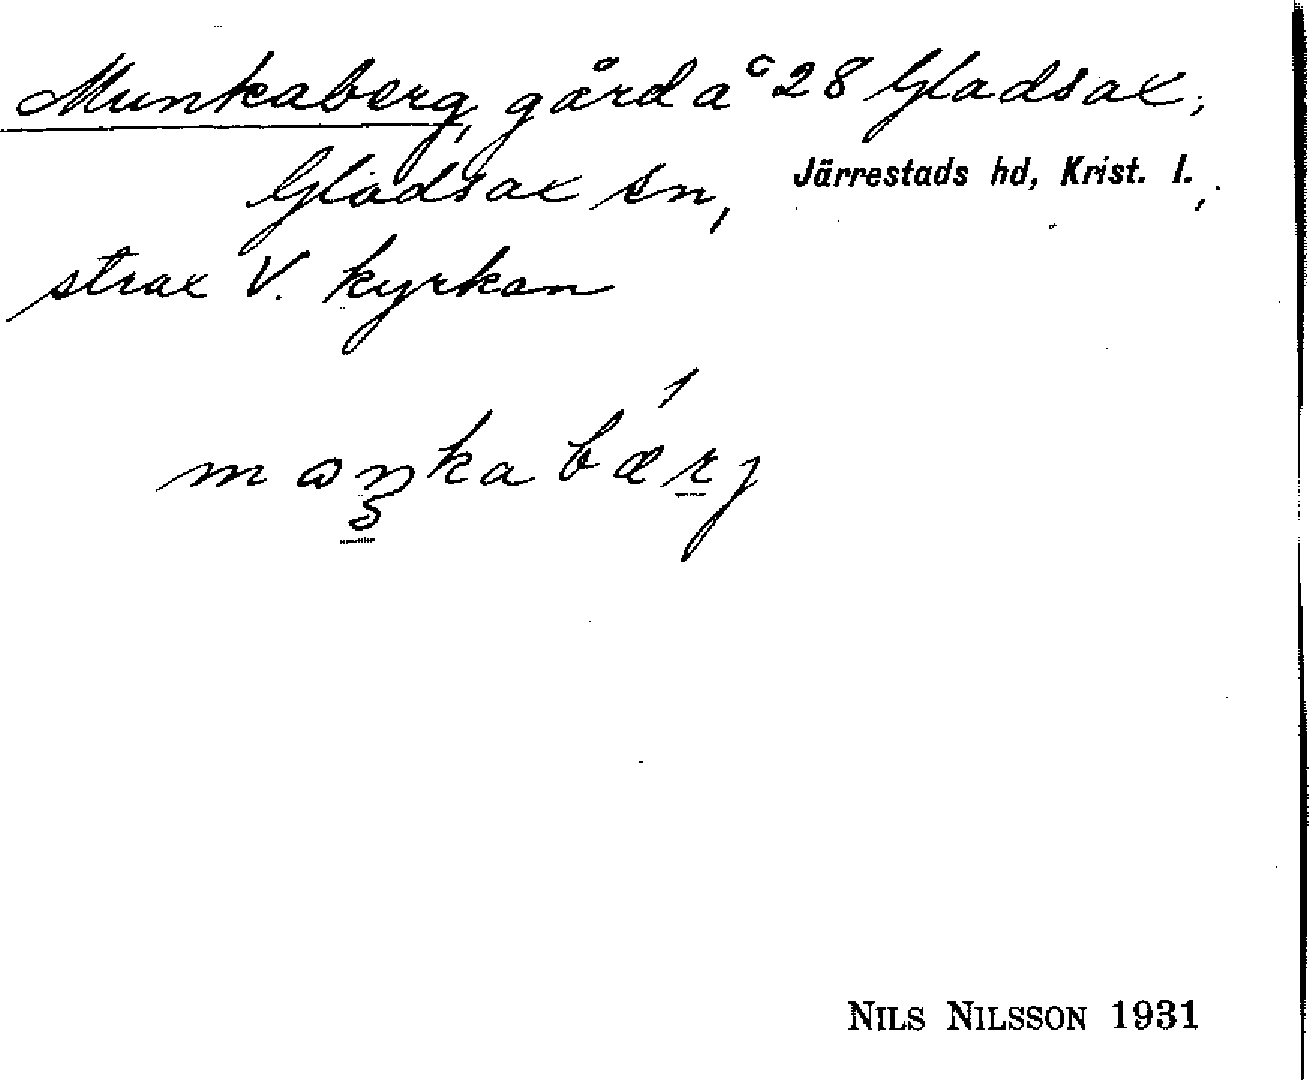 Munkaberg, gård å 28 Gladsax,
Gladsax sn, Järrestads hd, Krist. l.,
strax V. kyrkan
maŋkabærj
NILS NILSSON 1931